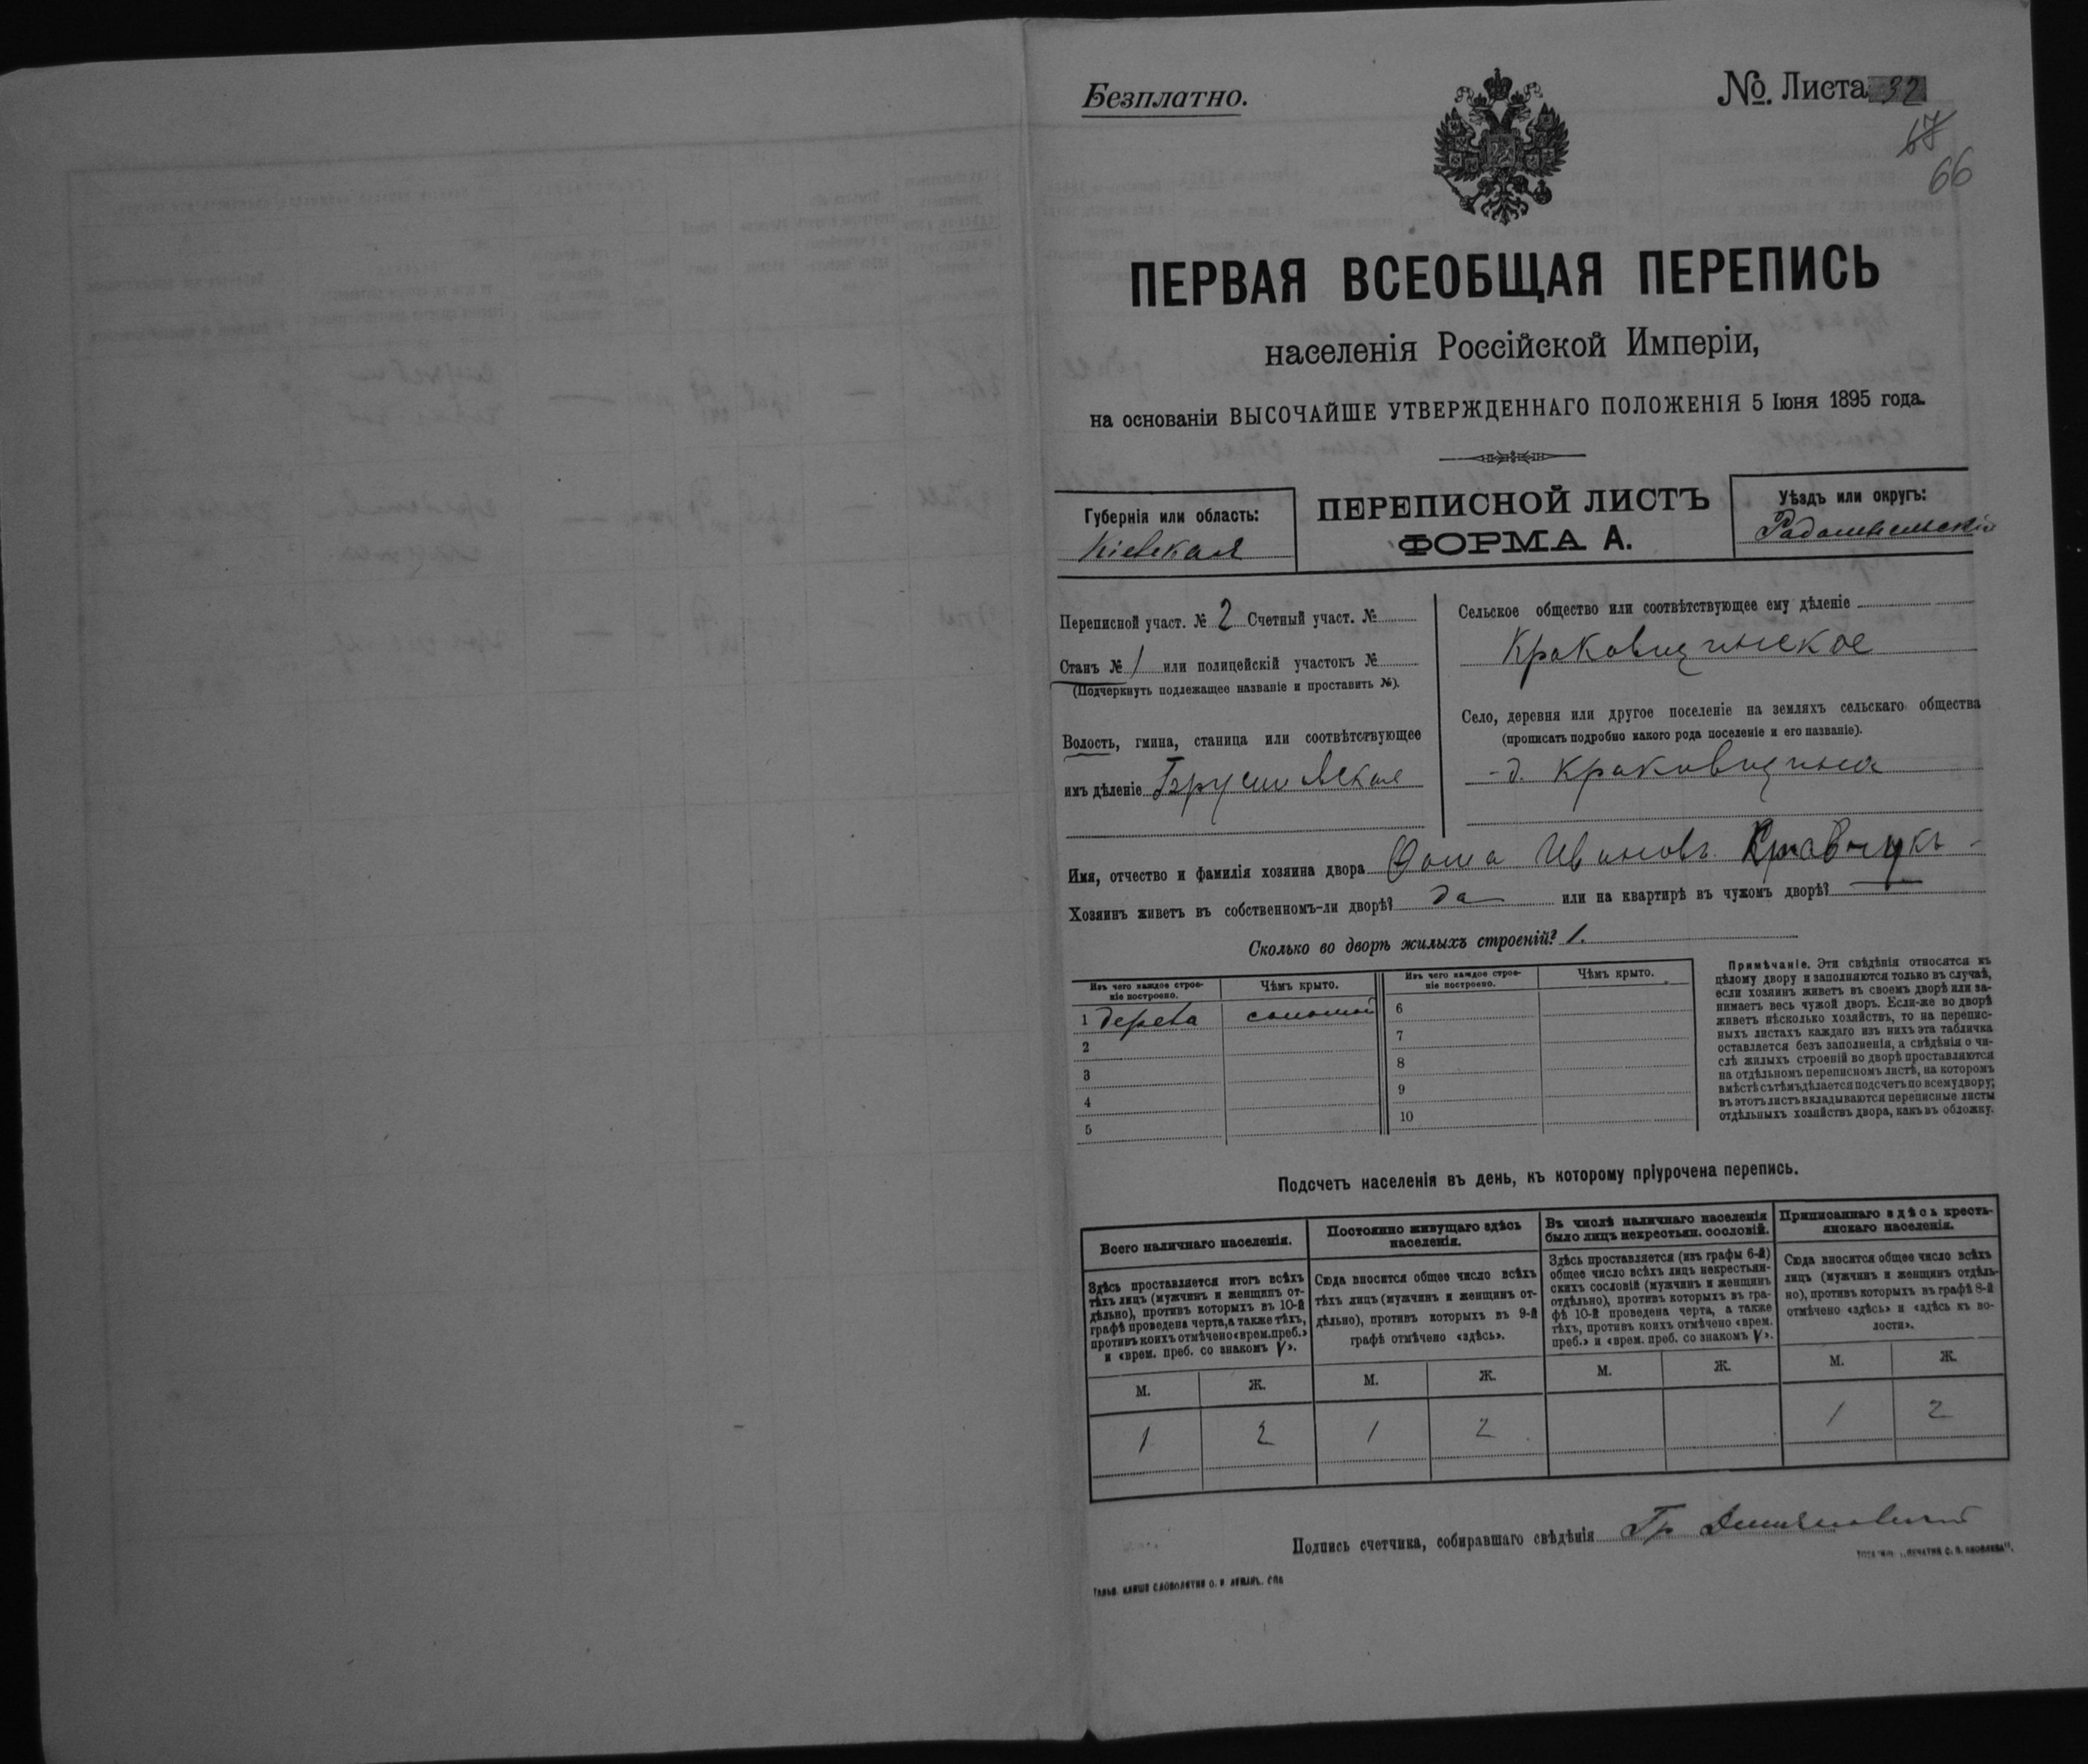 Безплатно.
№ Листа 32
67
66
ПЕРВАЯ ВСЕОБЩАЯ ПЕРЕПИСЬ
населенія Россійской Имперіи,
на основаніи ВЫСОЧАЙШЕ УТВЕРЖДЕННАГО ПОЛОЖЕНІЯ 5 Іюня 1895 года.
Губернія или область:
Кіевская
ПЕРЕПИСНОЙ ЛИСТЪ
ФОРМА А.
Уѣздъ или округъ:
Радомысльскій
Переписной участ. № 2 Счетный участ. №
Станъ № 1 или полицейскій участокъ №
(Подчеркнуть подлежащее названіе и проставить №).
Волость, гмина, станица или соотвѣтствующее
имъ дѣленіе Брусиловская
Сельское общество или соотвѣтствующее ему дѣленіе
Краковщинское
Село, деревня или другое поселеніе на земляхъ сельскаго общества
(прописать подробно какого рода поселеніе и его названіе).
д. Краковщина
Имя, отчество и фамилія хозяина двора Ѳома Ивановъ Кравчукъ
Хозяинъ живетъ въ собственномъ-ли дворѣ? да или на квартирѣ въ чужомъ дворѣ? —
Сколько во дворѣ жилыхъ строеній? 1.
Изъ чего каждое строе-
ніе построено.
Чѣмъ крыто.
Изъ чего каждое строе-
ніе построено.
Чѣмъ крыто.
1 дерева соломой 6
2 7
3 8
4 9
5 10
Примѣчаніе. Эти свѣдѣнія относятся къ
цѣлому двору и заполняются только въ случаѣ,
если хозяинъ живетъ въ своемъ дворѣ или за-
нимаетъ весь чужой дворъ. Если-же во дворѣ
живетъ нѣсколько хозяйствъ, то на перепис-
ныхъ листахъ каждаго изъ нихъ эта табличка
оставляется безъ заполненія, а свѣдѣнія о чи-
слѣ жилыхъ строеній во дворѣ проставляются
на отдѣльномъ переписномъ листѣ, на которомъ
вмѣстѣ съ тѣмъ дѣлается подсчетъ по всему двору;
въ этотъ листъ вкладываются переписные листы
отдѣльныхъ хозяйствъ двора, какъ въ обложку.
Подсчетъ населенія въ день, къ которому пріурочена перепись.
Всего наличнаго населенія.
Здѣсь проставляется итогъ всѣхъ
тѣхъ лицъ (мужчинъ и женщинъ от-
дѣльно), противъ которыхъ въ 10-й
графѣ проведена черта, а также тѣхъ,
противъ коихъ отмѣчено «врем. преб.»
и «врем. преб. со знакомъ V».
Постоянно живущаго здѣсь
населенія.
Сюда вносится общее число всѣхъ
тѣхъ лицъ (мужчинъ и женщинъ от-
дѣльно), противъ которыхъ въ 9-й
графѣ отмѣчено «здѣсь».
Въ числѣ наличнаго населенія
было лицъ некрестьян. сословій.
Здѣсь проставляется (изъ графы 6-й)
общее число всѣхъ лицъ некрестьян-
скихъ сословій (мужчинъ и женщинъ
отдѣльно), противъ которыхъ въ гра-
фѣ 10-й проведена черта, а также
тѣхъ, противъ коихъ отмѣчено «врем.
преб.» и «врем. преб. со знакомъ V».
Приписаннаго здѣсь кресть-
янскаго населенія.
Сюда вносится общее число всѣхъ
лицъ (мужчинъ и женщинъ отдѣль-
но), противъ которыхъ въ графѣ 8-й
отмѣчено «здѣсь» и «здѣсь къ во-
лости».
М. Ж. М. Ж. М. Ж. М. Ж.
1 2 1 2 1 2
Подпись счетчика, собиравшаго свѣдѣнія Гр